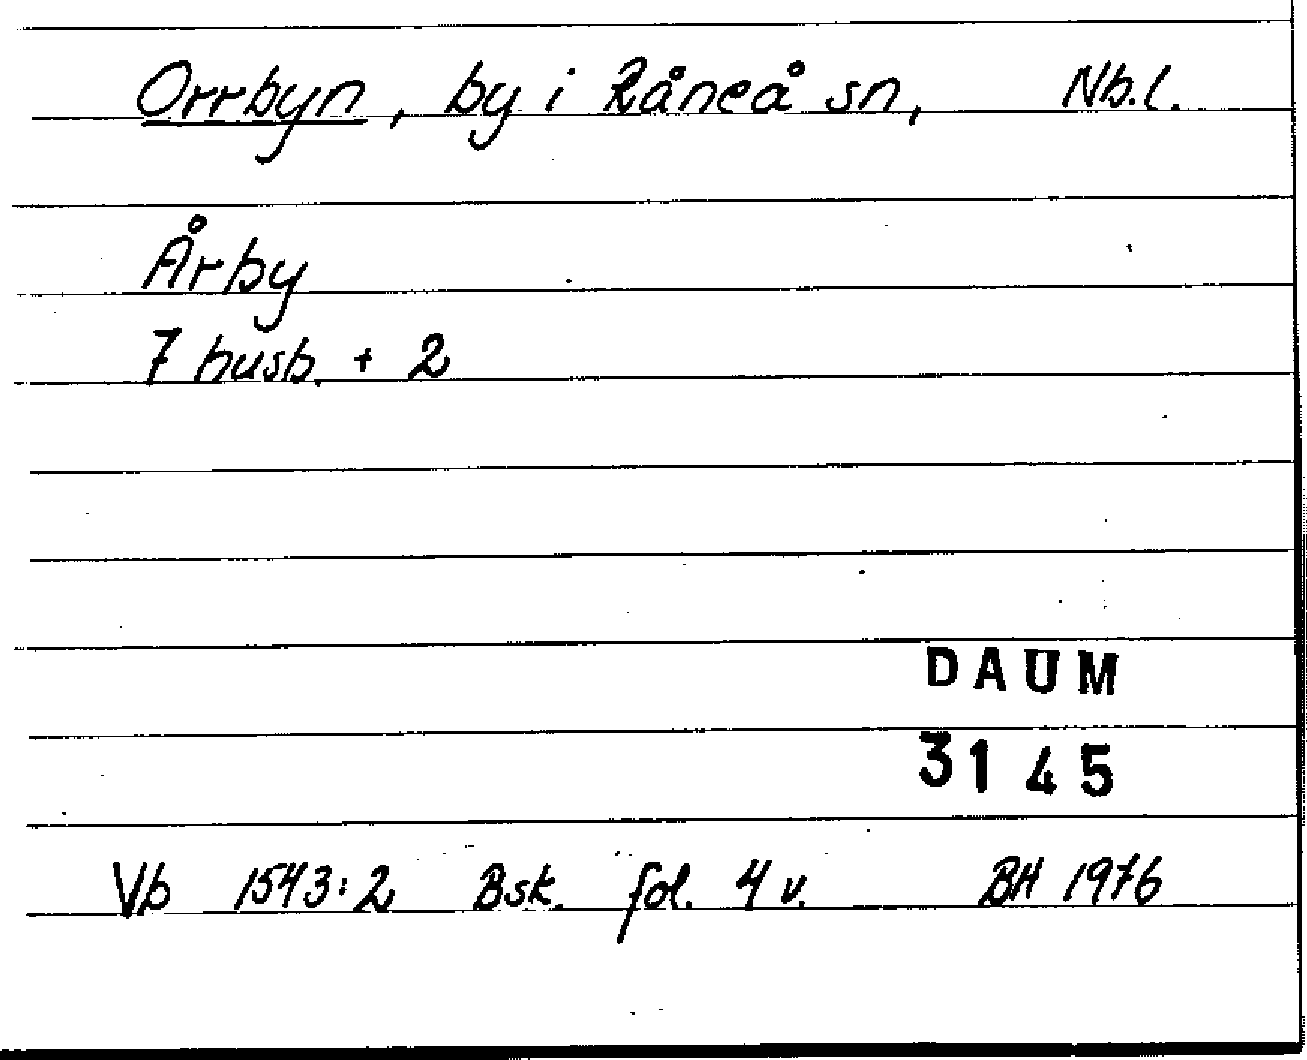 Orrbyn, by i Råneå sn, Nb.l.
Årby
7 husb. + 2
DAUM
3145
Vb 1543:2 Bsk. fol. 4 v. BH 1976